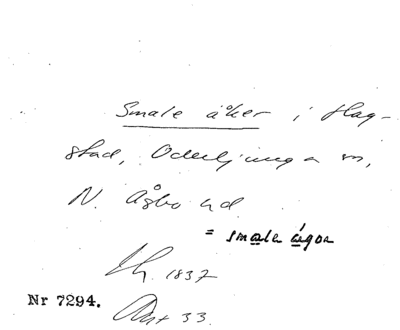 Smale åker i Hag-
stad, Oderljunga sn,
N. Åsbo hd.
= smala ågor
Lh. 1837
Nr 7294. Akt 33.